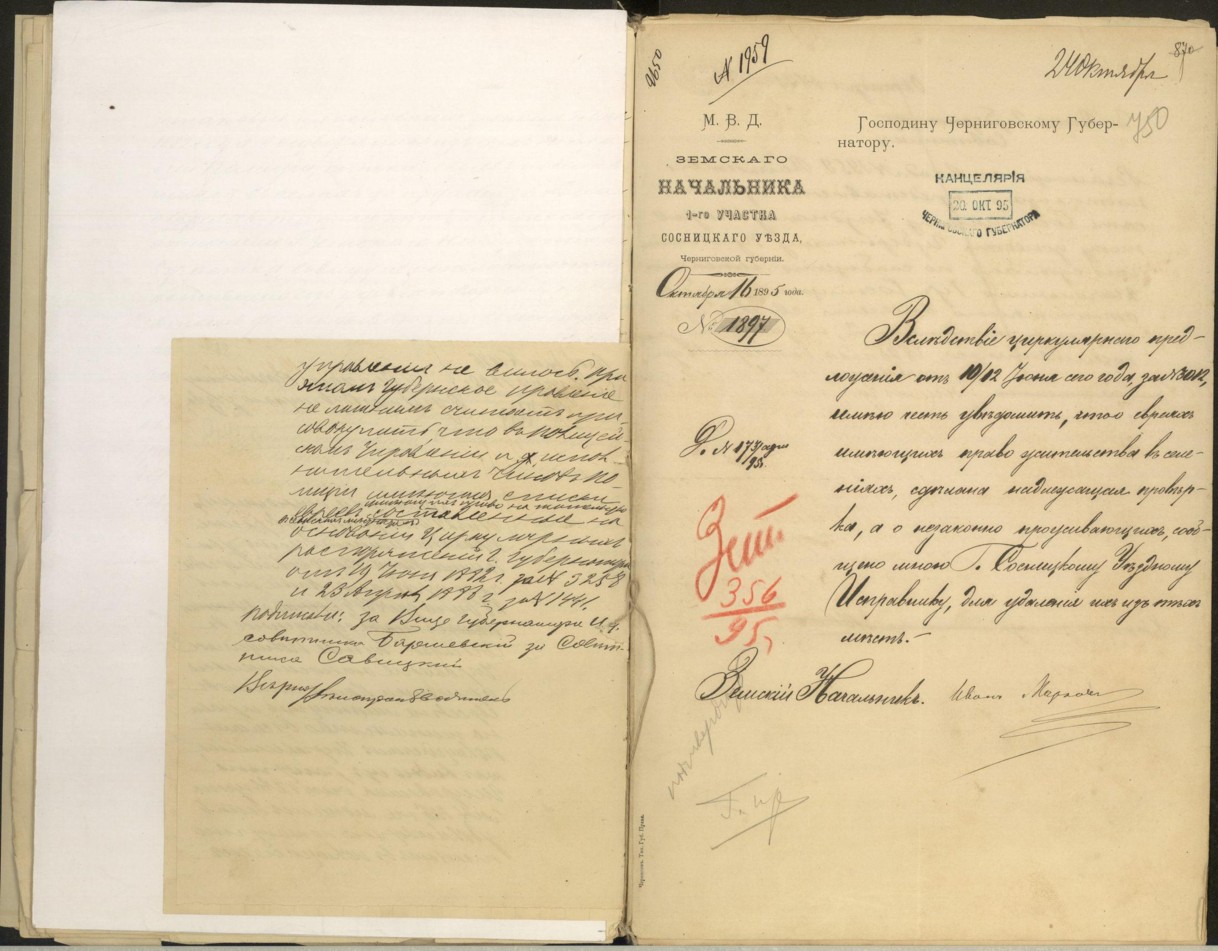 управления не велось. При
этомъ Губернское правление
не лишнимъ считаетъ при
совокупить что въ полицей
скомъ Управлении и у испол
нительныхъ чиновъ по
лиции имеются списки
евреевъ составленные на
основании Циркулярныхъ
распоряжений г. Губернатора
отъ 19 Июня 1882 г. за № 5258
и 23 Апреля 1888 г. за № 1441.
Подписали: за Вице Губернатора
совѣтникъ за Совѣт-
ника Савицкий
N 1959
24 Октября
870
750
М. В. Д.
ЗЕМСКАГО
НАЧАЛЬНИКА
1-го УЧАСТКА
СОСНИЦКАГО УѢЗДА,
Черниговской губерніи.
Октября 16 1895 года.
№ 1897
Господину Черниговскому Губер-
натору.
КАНЦЕЛЯРІЯ
20 ОКТ 95
ЧЕРНИГОВСКАГО ГУБЕРНАТОРА
Вслѣдствіе циркулярнаго пред-
ложенія отъ 10/12 Іюня сего года, за №3012,
имѣю честь увѣдомить, что о евреяхъ
имѣющихъ право жительства въ селе-
ніяхъ, сдѣлана надлежащая провѣр-
ка, а о незаконно проживающихъ, сооб-
щено мною Г. Сосницкому Уѣздному
Исправнику, для удаленія ихъ изъ этихъ
мѣстъ.-
356
95
Земскій Начальникъ.
Черниговъ. Тип. Губ. Прав.